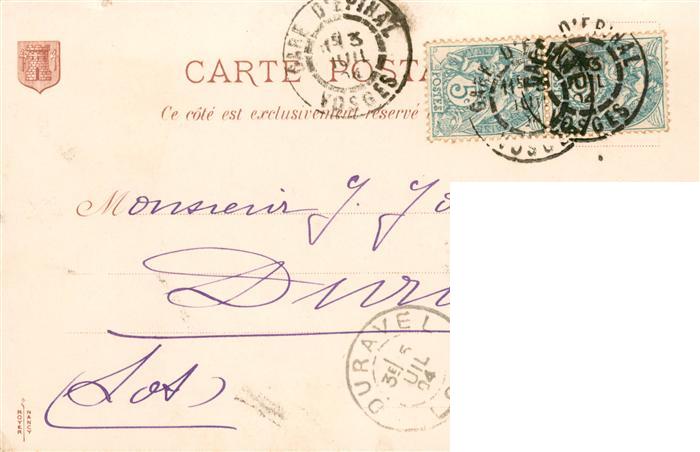 CARTE POSTA
Ce côté est exclusivement réservé
GARE D'EPINAL
3
JUIL
VOSGES
POSTES
5
GARE D'EPINAL
3
JUIL
04
VOSGES
Monsieur J. Jo
Dur
(Lot)
DURAVEL
3E 5
JUIL
04
LO
ROYER
NANCY